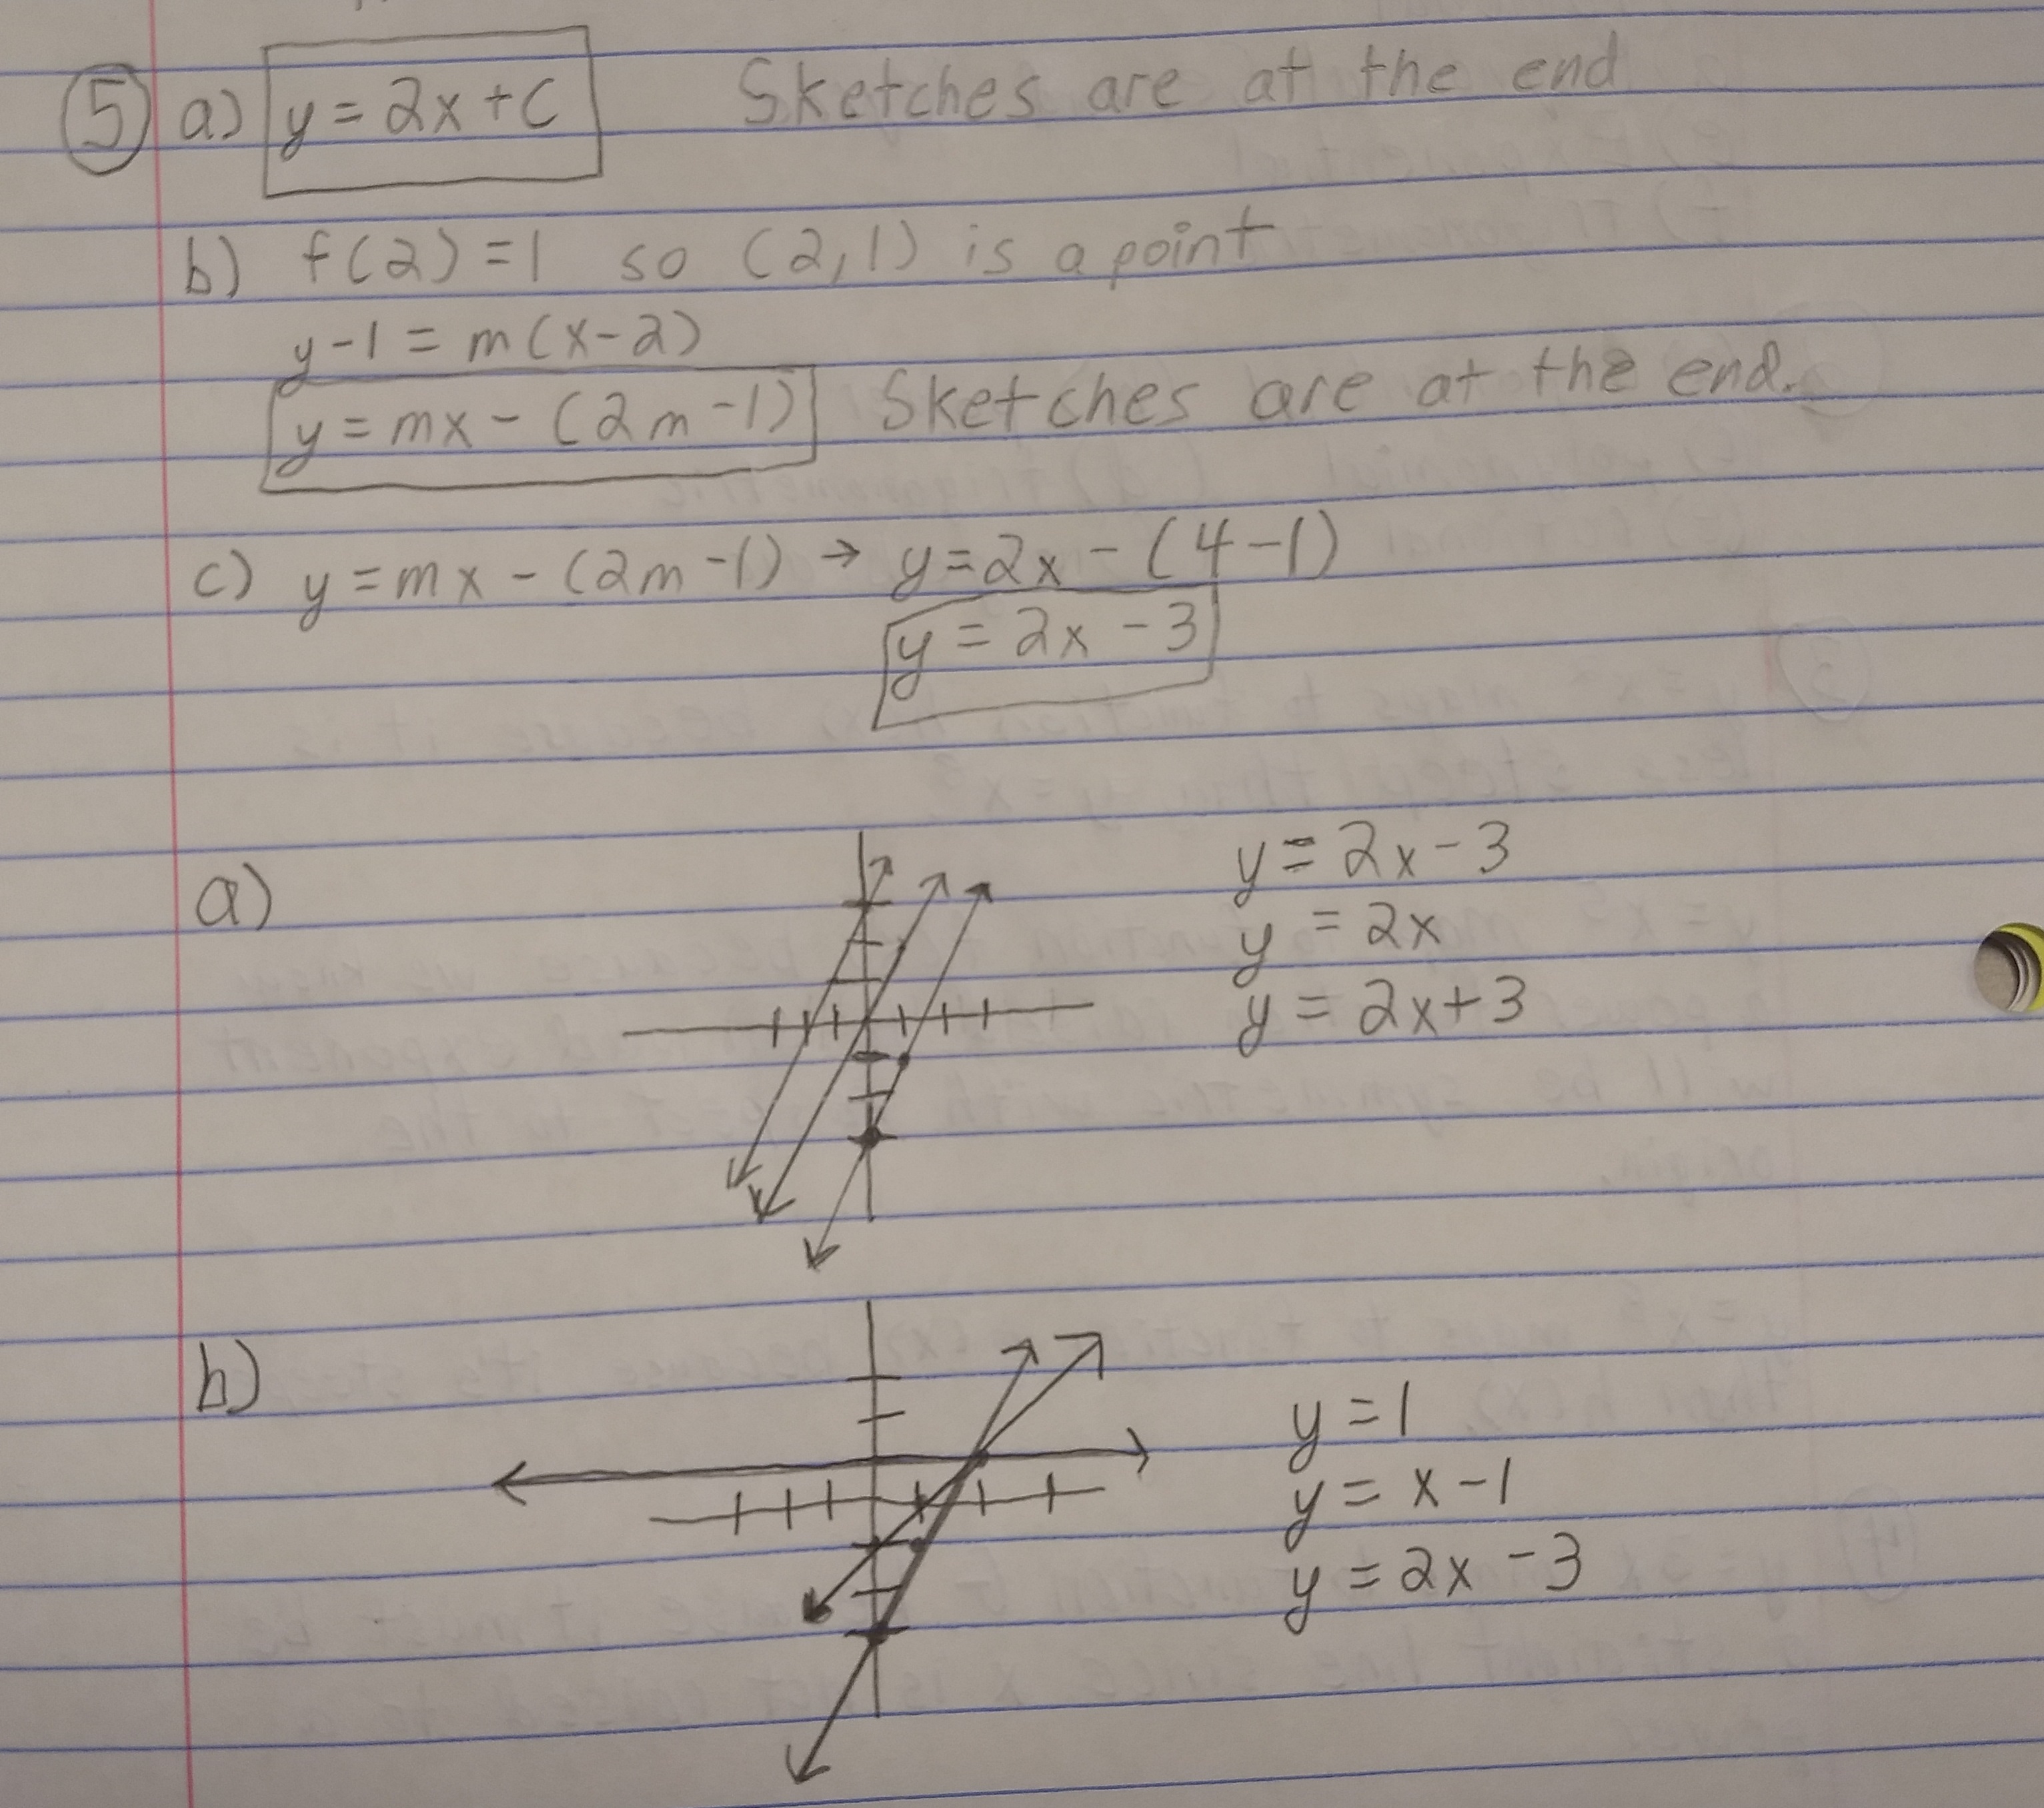 5 a) y = 2x + C Sketches are at the end
b) f(2) = 1 so (2,1) is a point
y - 1 = m(x - 2)
y = mx - (2m - 1) Sketches are at the end.
c) y = mx - (2m - 1) → y = 2x - (4 - 1)
y = 2x - 3
a)
y = 2x - 3
y = 2x
y = 2x + 3
b)
y = 1
y = x - 1
y = 2x - 3